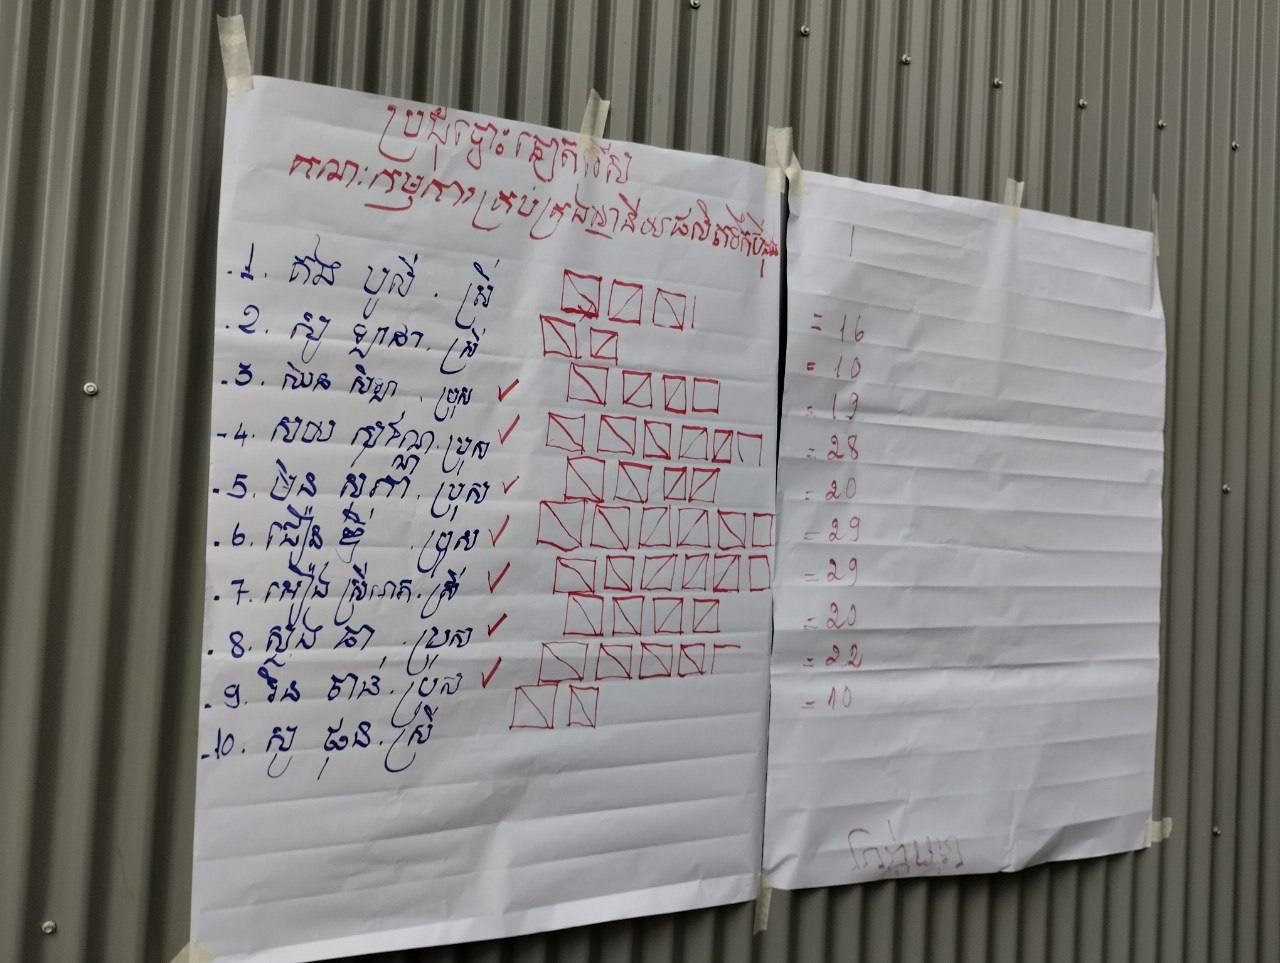 ប្រជុំបោះឆ្នោតរើស
គណៈកម្មការគ្រប់គ្រងស្ថានីយផលិតទឹកប៊ីដុង
1. គង់ បូលី . ស្រី = 16
2. សុំ ឡាដា . ស្រី = 10
3. ឈន សិទ្ធា . ប្រុស ✓ = 19
4. សយ សុវណ្ណ . ប្រុស ✓ = 28
5. ម៉ន សុភា . ប្រុស ✓ = 20
6. . ប្រុស ✓ = 29
7. ស្រីមាក . ស្រី ✓ = 29
8. ស៊ឹង ធា . ប្រុស ✓ = 20
9. វ៉ន ចាន់ . ប្រុស ✓ = 22
10. សូ ផុន . ស្រី = 10